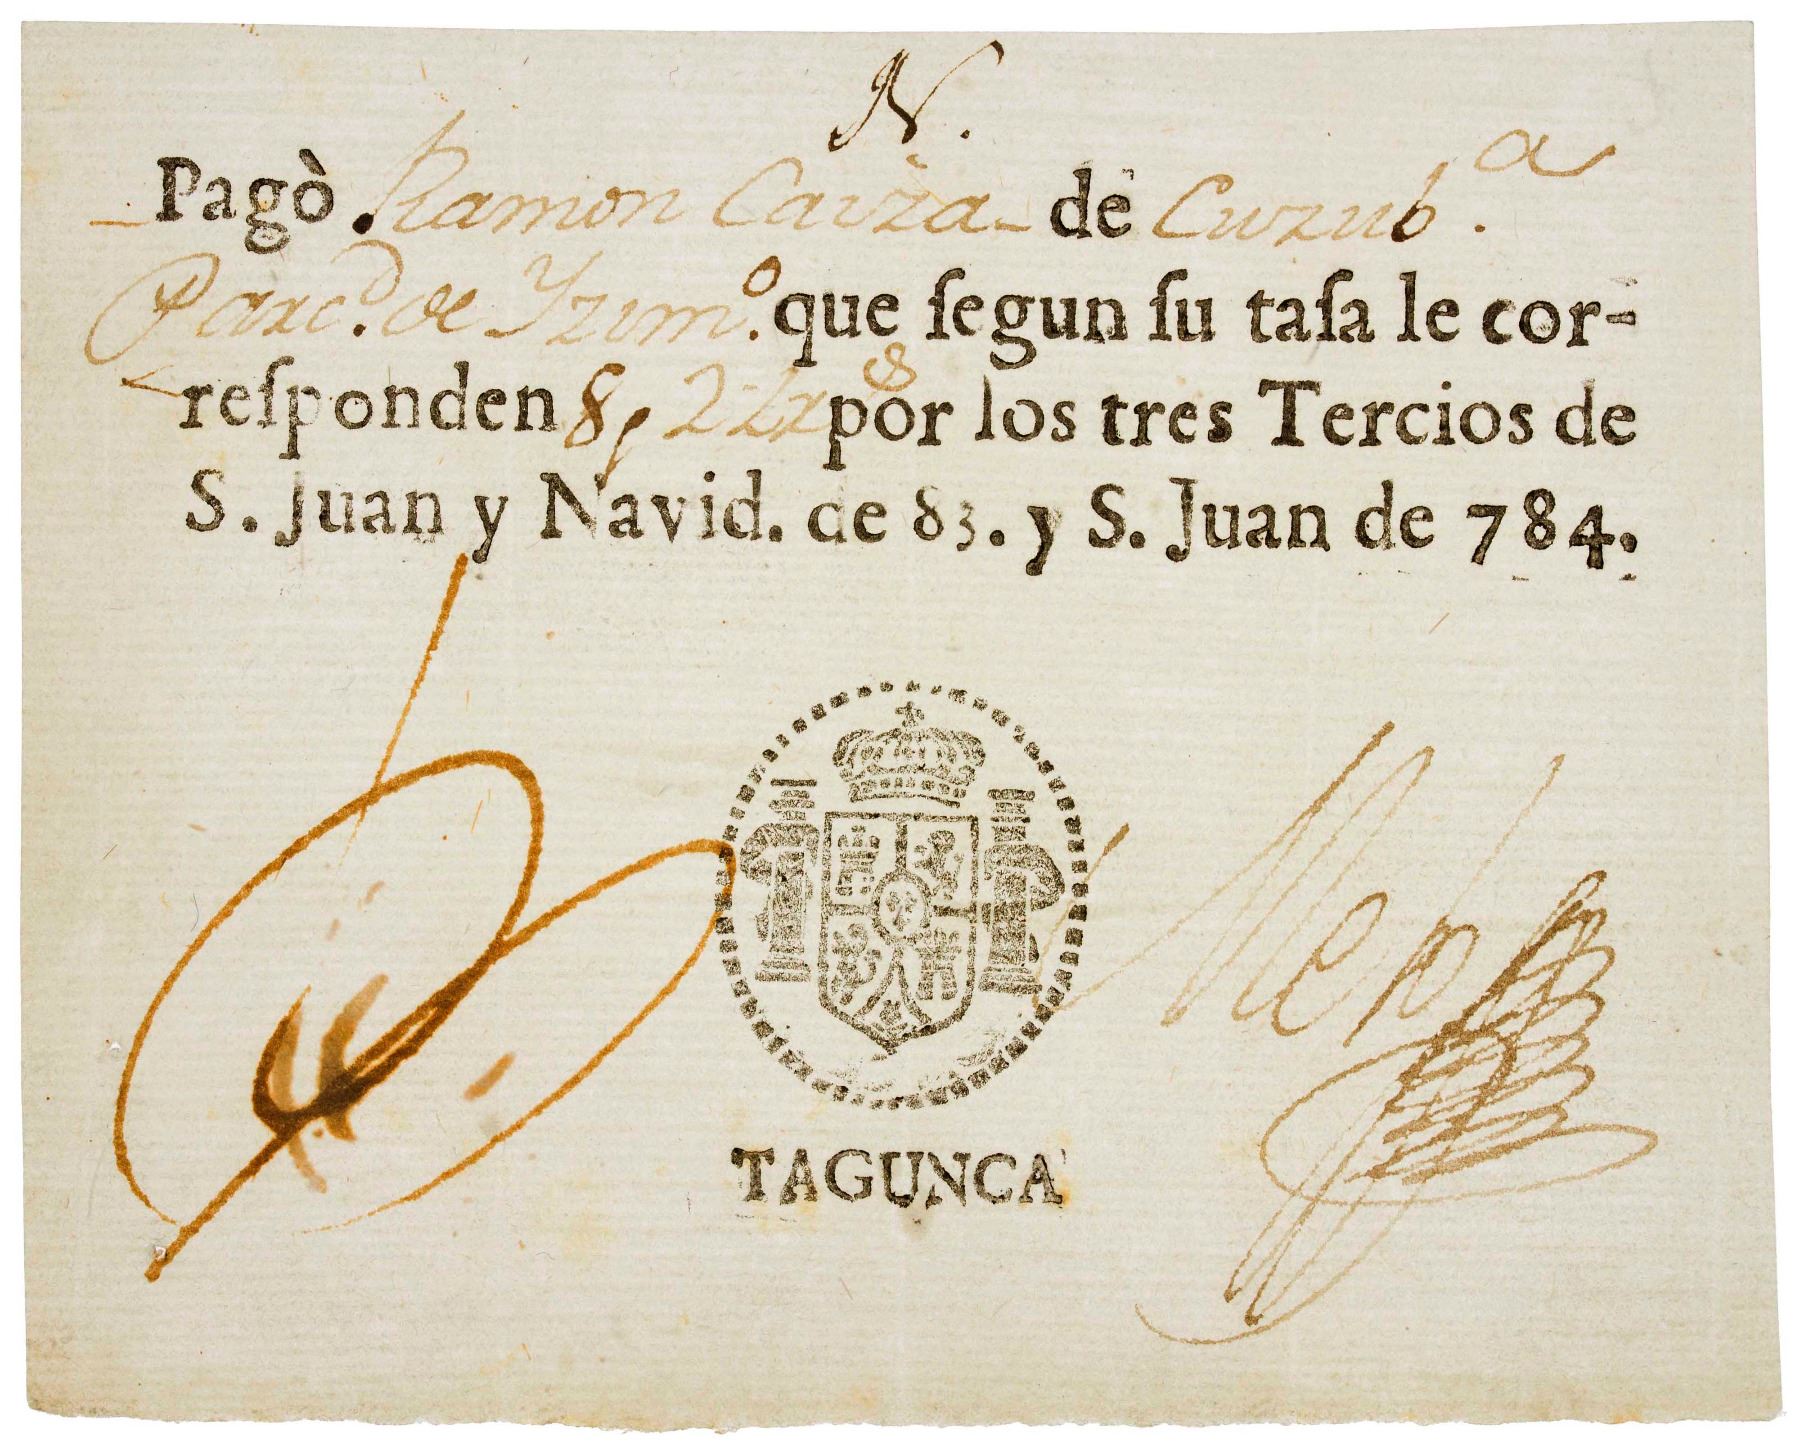 N.
Pagò Ramon Caiza de Curub.ª
Parc.d de Yzim.º que ſegun ſu taſa le cor-
reſponden 8, 2 ½ rs por los tres Tercios de
S. Juan y Navid. de 83. y S. Juan de 784.
TAGUNCA